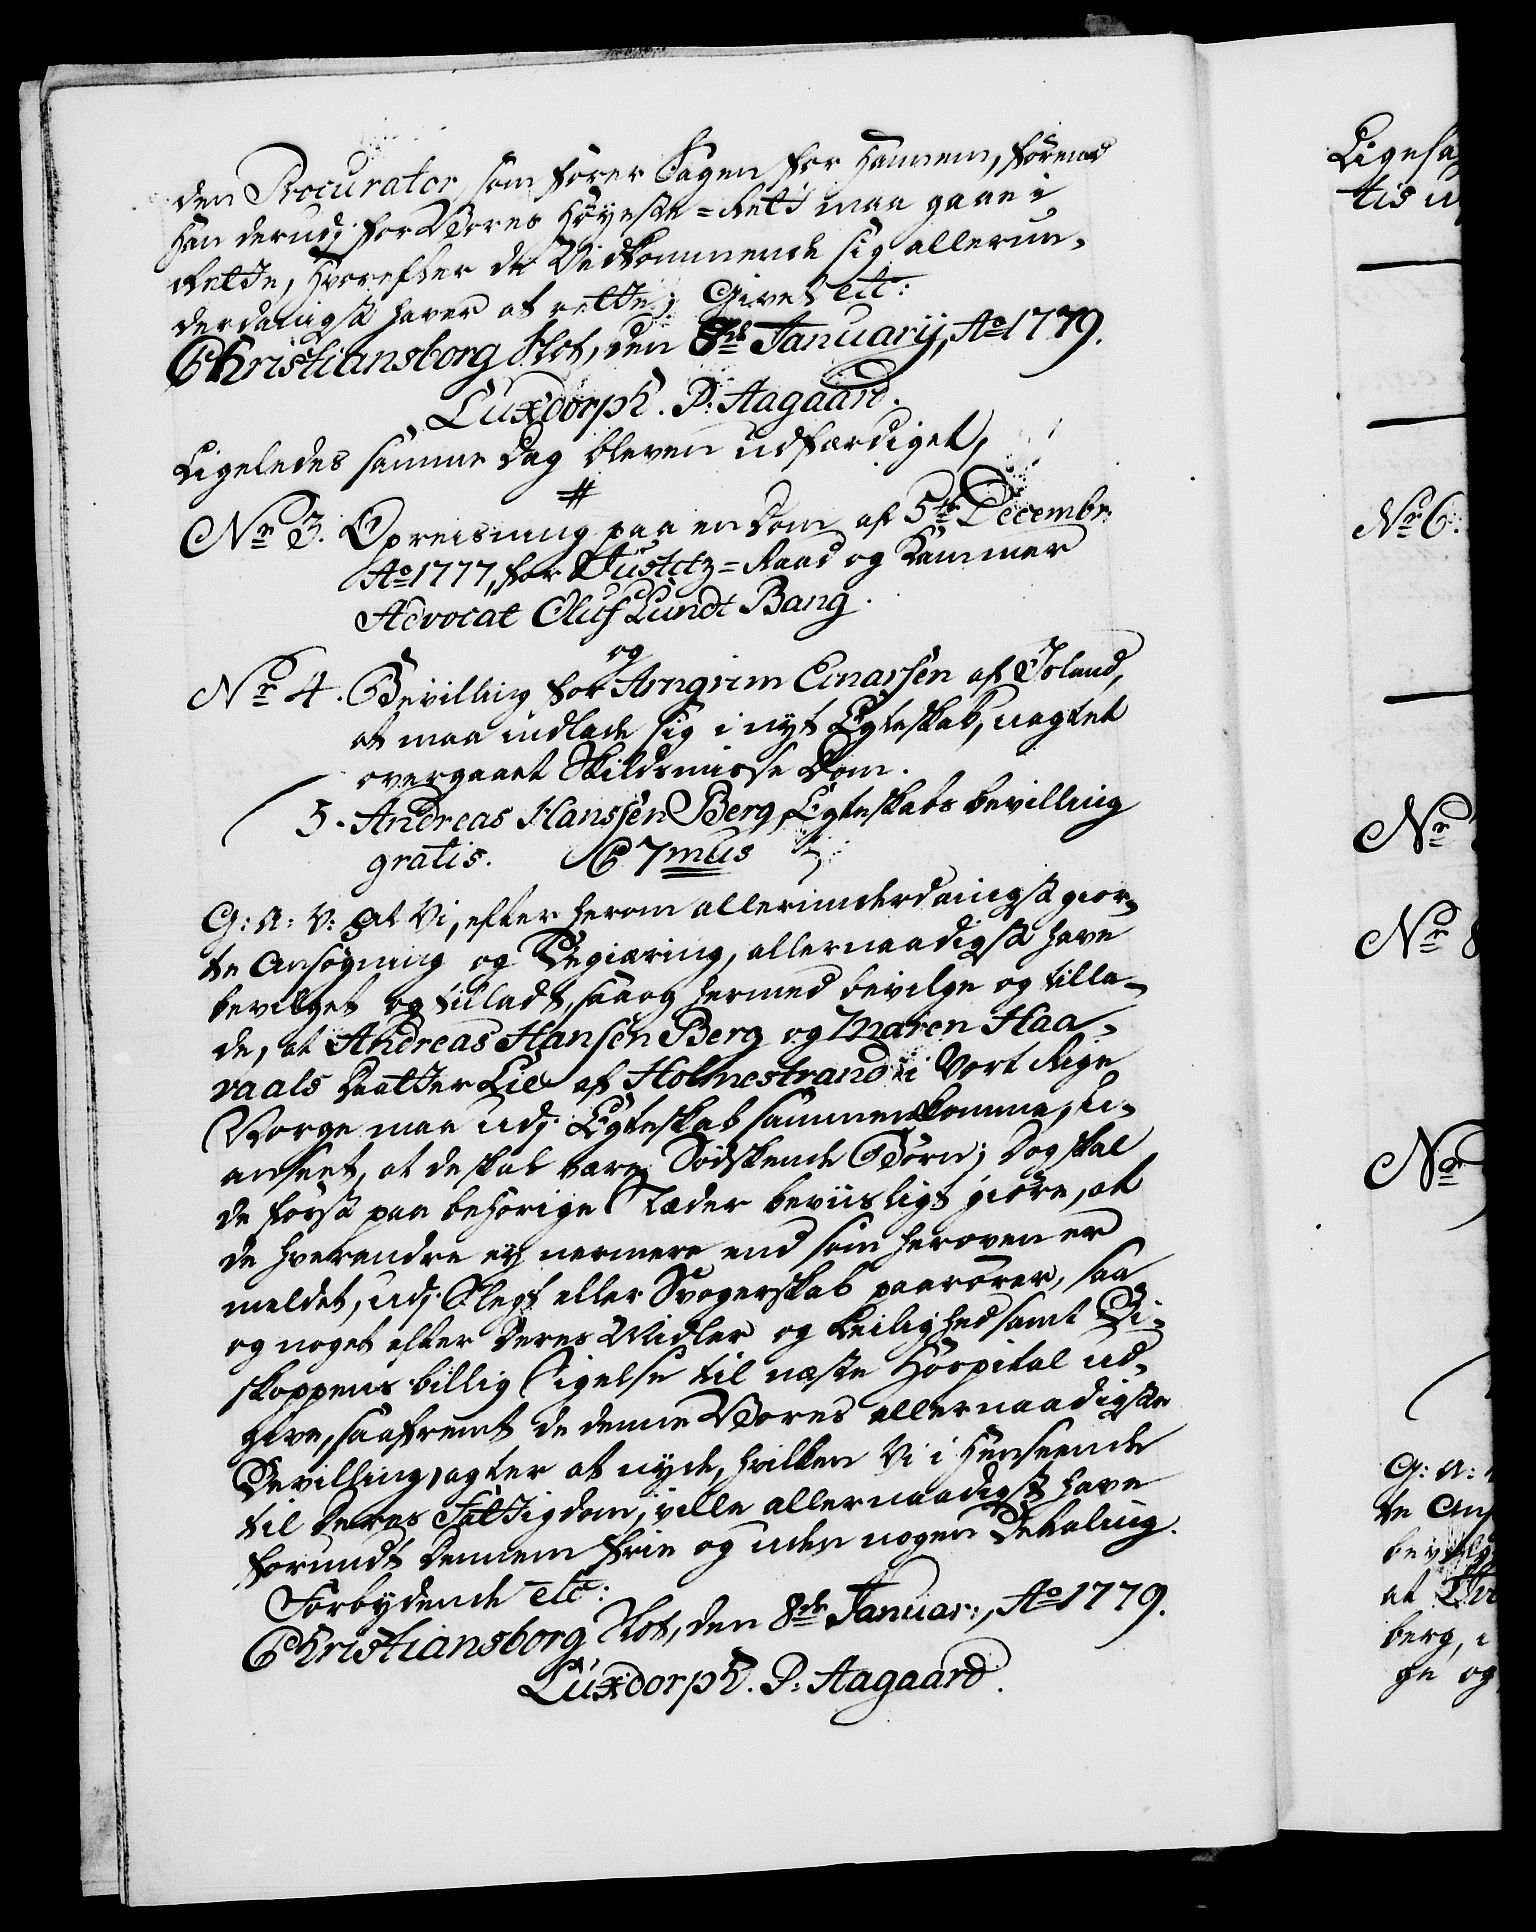 den Procurator som fører Sagen for Hannem, førend
Han derudj for Vores Høyeste-Rett maa gaae i
Rette, Hvorefter de Vedkommende sig allerun-
derdanigst haver at rette; Givet etc:
Christiansborg Slot, den 8de Januarij, Ao 1779.
Luxdorph. P: Aagaard.
Ligeledes samme Dag bleven udfærdiget,
#
No 3. Opreisning paa en Dom af 5te Decembr:
Ao 1777, for Justitz-Raad og Kammer
Advocat Oluf Lundt Bang.
og
No 4. Bevilling for Arngrim Einarssen af Island,
at maa indlade sig i nyt Egteskab, uagtet
overgaaet Skildsmisse Dom.
5. Andreas Hanssen Berg, Egteskabs bevilling
gratis. C 7mus
G: A: V: At Vi, efter herom allerunderdanigst gior-
te Ansøgning og Begiæring, allernaadigst have
bevilget og tilladt, saa og hermed bevilge og tilla-
de, at Andreas Hansen Berg og Maren Haa-
vaals Daatter Lie af Holmestrand i Vort Rige
Norge maa udj Egteskab sammenkomme, u-
anseet, at de skal være Sødskende Børn; Dog skal
de først paa behørige Stæder beviisligt giøre, at
de hverandre ey nermere end som heroven er
meldet, udj Slegt eller Svogerskab paarører, saa
og noget efter Deres Midler og Leilighed samt Bi-
skoppens billig Sigelse til næste Hospital ud-
give, saafremt de denne Vores allernaadigste
Bevilling, agter at nyde, hvilken Vi i Henseende
til Deres Fattigdom, ville allernaadigst have
forundt Dennem frie og uden nogen Betaling.
Forbydende etc:
Christiansborg Slot, den 8de Januar:, Ao 1779.
Luxdorph. P: Aagaard.
Ligesa
tis u
No 6:
No
No 8
No
G: A:
te Ans
bevilg
at
berg, i
ge og